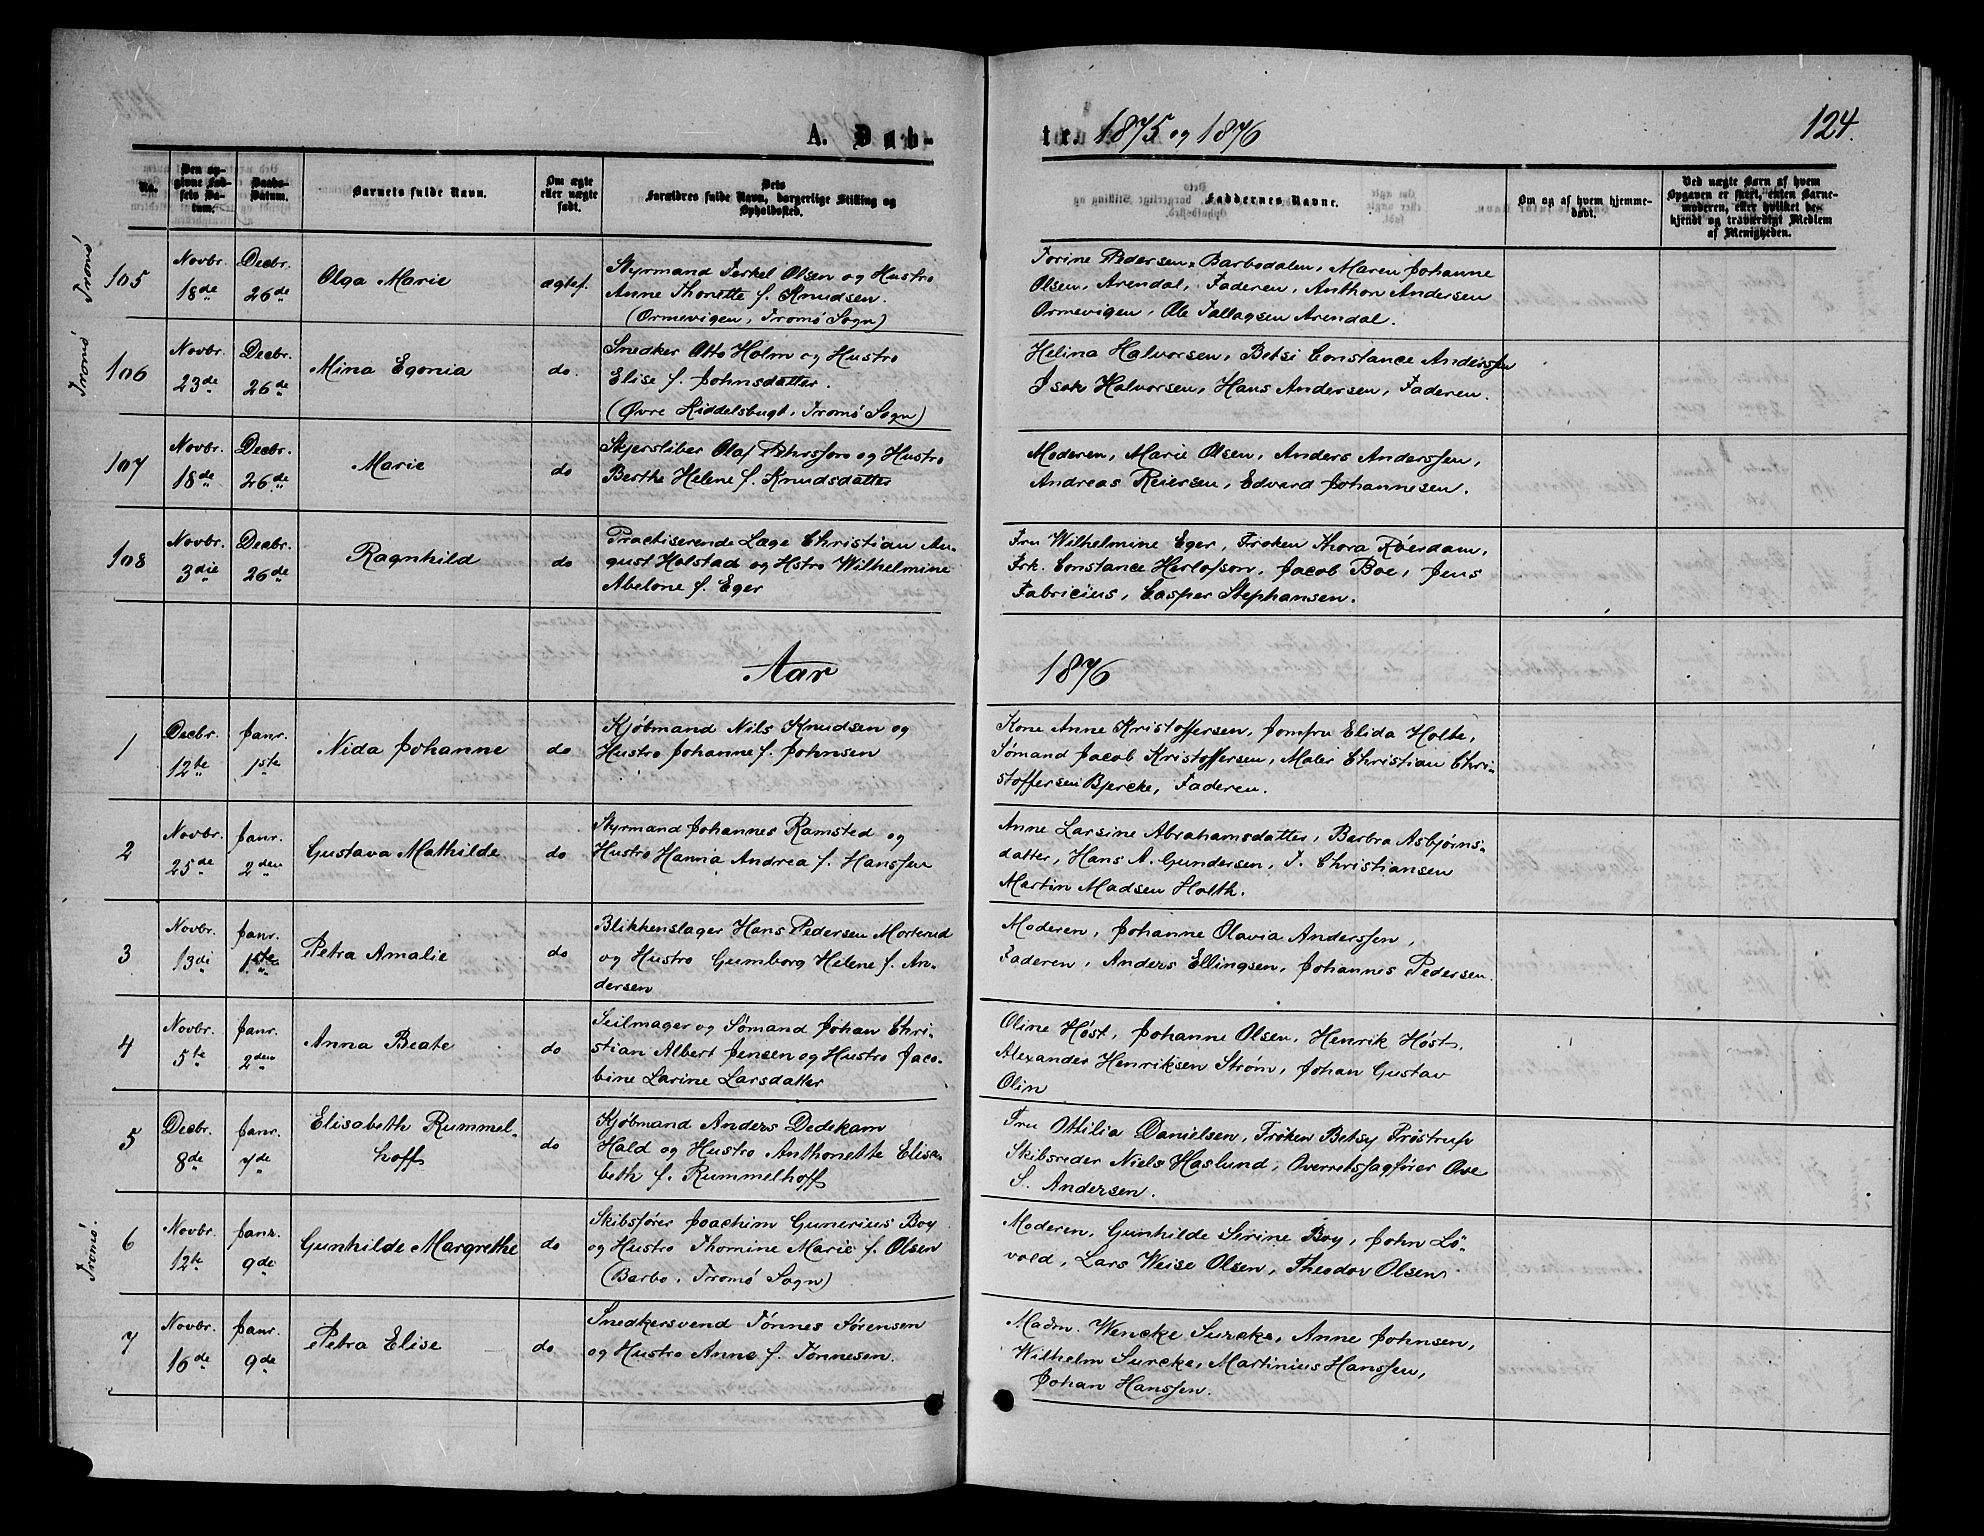 A. Døb-
tr. 1875 og 1876
124.
No.
Den op-
givne Fød-
sels Da-
tum.
Daabs-
Datum.
Barnets fulde Navn.
Om ægte
eller uægte
født.
Dets
Forældres fulde Navn, borgerlige Stilling og
Opholdssted.
Faddernes Navne.
Om og af hvem hjemme-
døbt.
Ved uægte Børn af hvem
Opgaven er skeet, enten Barne-
moderen, eller hvilket be-
kjendt og troværdigt Medlem
af Menigheden.
Tromø
105
Novbr.
18de
Decbr.
26de
Olga Marie
ægtef.
Styrmand Terkel Olsen og Hustro
Anne Thonette f. Knudsen.
(Ormevigen, Tromö Sogn)
Torine Pedersen, Barbodalen, Maren Johanne
Olsen, Arendal, Faderen, Anthon Andersen
Ormevigen, Ole Tallagsen Arendal.
Tromø
106
Novbr.
23de
Decbr.
26de
Mina Egonia
do.
Snedker Otto Holm og Hustro
Elise f. Johnsdatter.
(Øvre Kiddelsbugt, Tromö Sogn)
Helina Halvorsen, Betsi Constance Anderssen
Isak Halvorsen, Hans Andersen, Faderen.
107
Novbr.
18de
Decbr.
26de
Marie
do
Skjersliber Olaf og Hustro
Berthe Helene f. Knudsdatter
Moderen, Marie Olsen, Anders Anderssen,
Andreas Reiersen, Edvard Johannesen.
108
Novbr.
3die
Decbr.
26de
Ragnhild
do
Practiserende Læge Christian Au-
gust Holstad og Hstro Wilhelmine
Abelone f. Eger
Fru Wilhelmine Eger, Froken Thora Röerdam,
Frk. Constance Herlofson, Jacob Boe, Jens
Fabricius, Casper Stephansen.
Aar
1876
1
Decbr.
12te
Janr.
1ste
Nida Johanne
do
Kjøbmand Nils Knudsen og
Hustro Johanne f. Johnsen
Kone Anne Kristoffersen, Jomfru Elida Holte,
Sømand Jacob Kristoffersen, Maler Christian Chri-
stoffersen Bjercke, Faderen.
2
Novbr.
25de
Janr.
2den
Gustava Mathilde
do
Styrmand Johannes Ramsted og
Hustro Hanna Andrea f. Hanssen
Anne Larsine Abrahamsdatter, Barbra Asbjörns-
datter, Hans A. Gundersen, T. Christiansen
Martin Madsen Holth.
3
Novbr.
13di
Janr.
1ste
Petra Amalie
do
Blikkenslager Hans Pedersen Morterud
og Hustro Gumborg Helene f. An-
dersen
Moderen, Johanne Olavia Anderssen,
Faderen, Anders Ellingsen, Johannes Pedersen.
4
Novbr.
5te
Janr.
2den
Anna Beate
do
Seilmager og Sømand Johan Chri-
stian Albert Jensen og Hustro Jaco-
bine Larine Larsdatter
Oline Høst, Johanne Olsen, Henrik Høst,
Alexander Henriksen Strøm, Johan Gustav
Olin
5
Decbr.
8de
Janr.
7de
Elisabeth Rummel-
hoff
do
Kjøbmand Anders Dedekam
Hald og Hustro Anthonette Elisa-
beth f. Rummelhoff
Fru Othilia Danielsen, Frøken Betsy Prøstrup
Skibsreder Niels Haslund, Overretssagfører Ove
S. Andersen.
Tromö.
6
Novbr.
12te
Janr.
9de
Gunhilde Margrethe
do
Skibsfører Joachim Gunerius Boy
og Hustro Thomine Marie f. Olsen
(Barbo, Tromö Sogn)
Moderen, Gunhilde Serine Boy, John Lö-
vold, Lars Weise Olsen, Theodor Olsen.
7
Novbr.
16de
Janr.
9de
Petra Elise
do
Snedkersvend Tönnes Sørensen
og Hustro Anne f. Tönnesen.
Madm. Wencke Surcke, Anne Johnsen,
Wilhelm Surcke, Martinius Hanssen,
Johan Hanssen.